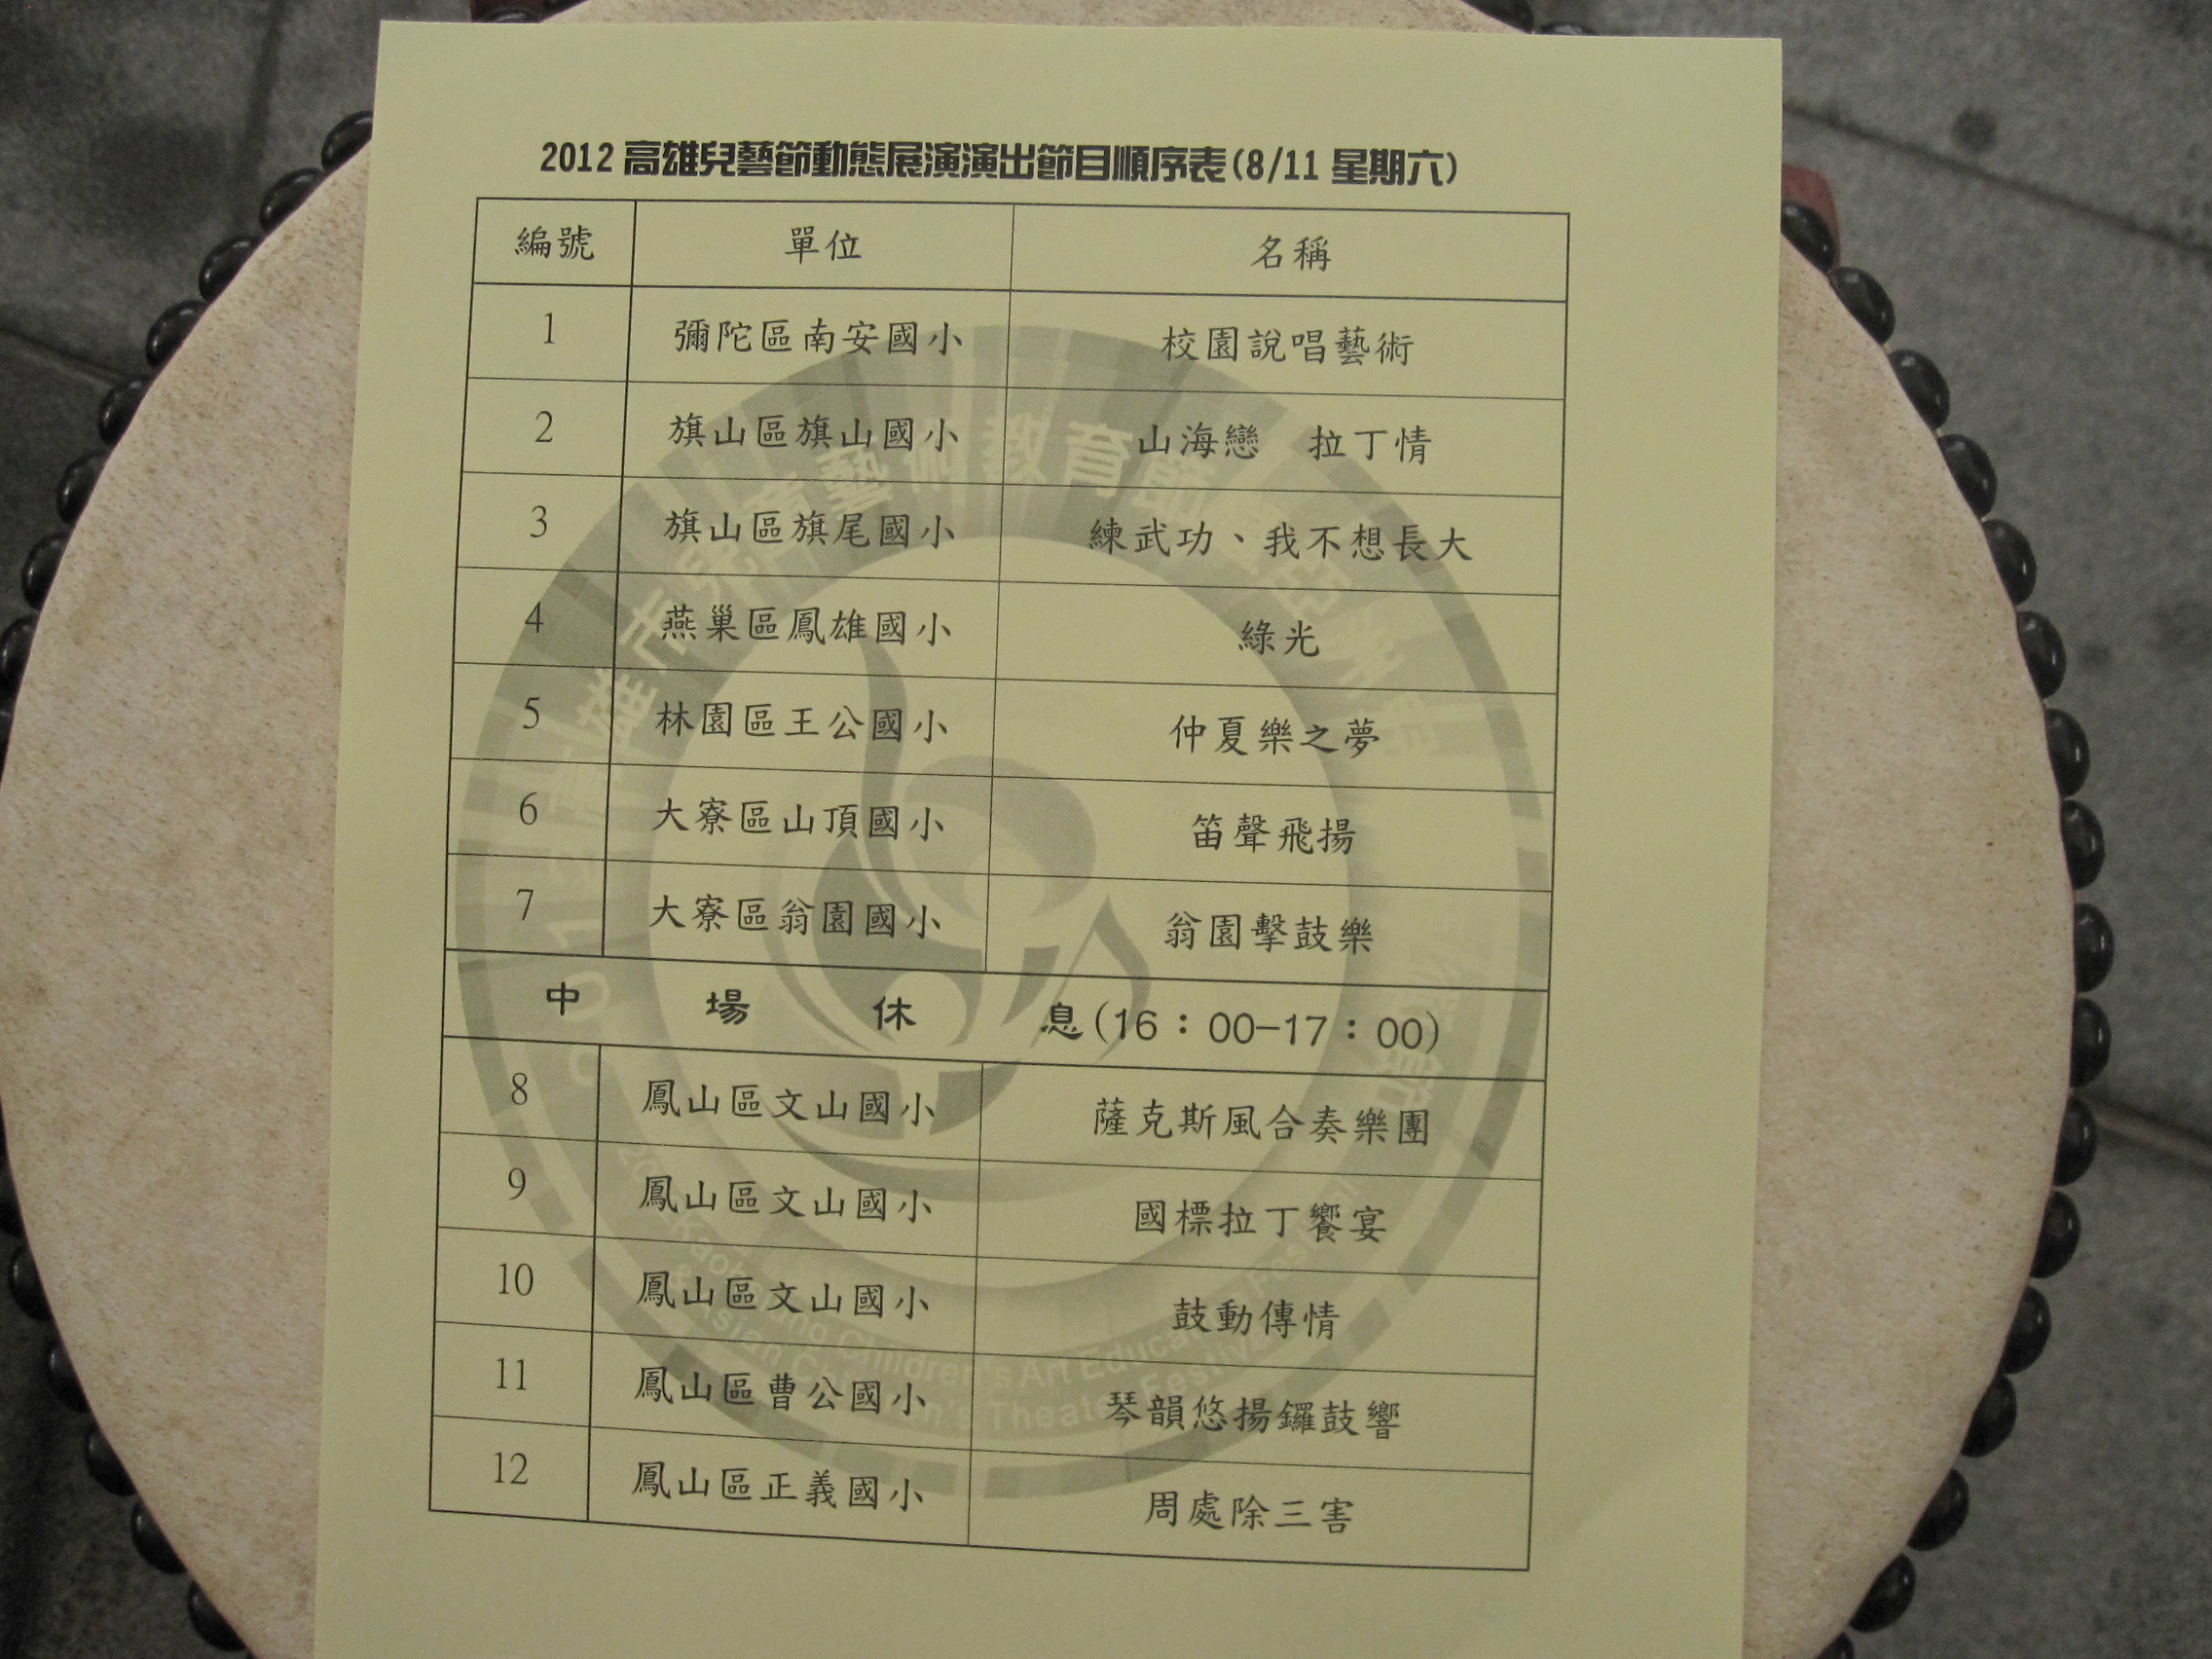 2012 高雄兒藝節動態展演演出節目順序表(8/11 星期六)
編號 單位 名稱
1 彌陀區南安國小 校園說唱藝術
2 旗山區旗山國小 山海戀 拉丁情
3 旗山區旗尾國小 練武功、我不想長大
4 燕巢區鳳雄國小 綠光
5 林園區王公國小 仲夏樂之夢
6 大寮區山頂國小 笛聲飛揚
7 大寮區翁園國小 翁園擊鼓樂
中 場 休 息(16：00-17：00)
8 鳳山區文山國小 薩克斯風合奏樂團
9 鳳山區文山國小 國標拉丁饗宴
10 鳳山區文山國小 鼓動傳情
11 鳳山區曹公國小 琴韻悠揚鑼鼓響
12 鳳山區正義國小 周處除三害